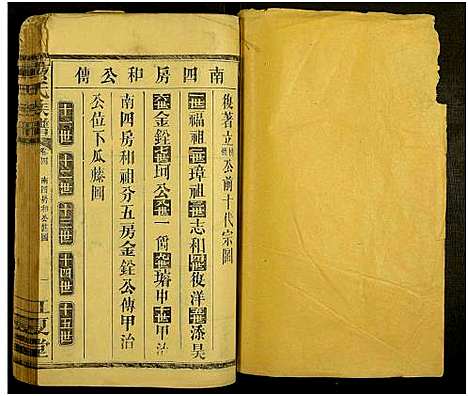 南四房和公傳
復著立公前十代宗圖
一世福祖二世璋祖三世志和四世復洋五世添昊
六世金銓七世坷公八世一筒九世璿申十世甲治
南四房和祖分五房金銓公傳甲治
公位下瓜瓞圖
十一世 十二世 十三世 十四世 十五世
氏族譜
卷四 南四房和公世圖
江夏堂